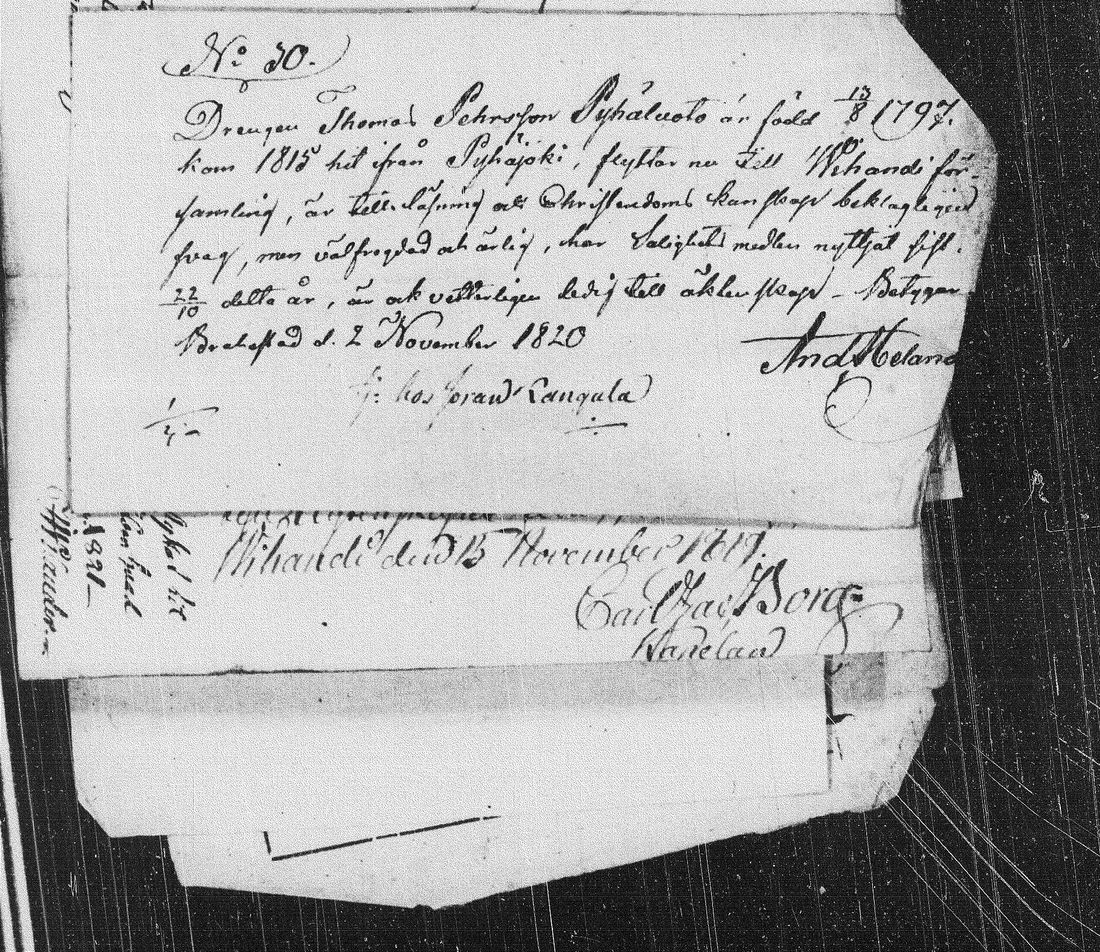 No 30.
Drengen Thomas Pehrsson Pyhäluoto är född 13/8 1797.
kom 1815 hit ifrån Pyhäjoki, flyttar nu till Wihandi för-
samling, är till läsning och Christendoms kunskap beklageligen
svag, men välfrejdad och ärlig, har Salighets medlen nyttjat sist.
22/10 detta år, är ock vetterligen ledig till äktenskap – Betygar
Brahestad d. 2 November 1820
And Heland
hos Jöran Langula
Wihandi den 15 November 1819.
Carl Jac Borg
Kapelan
1821